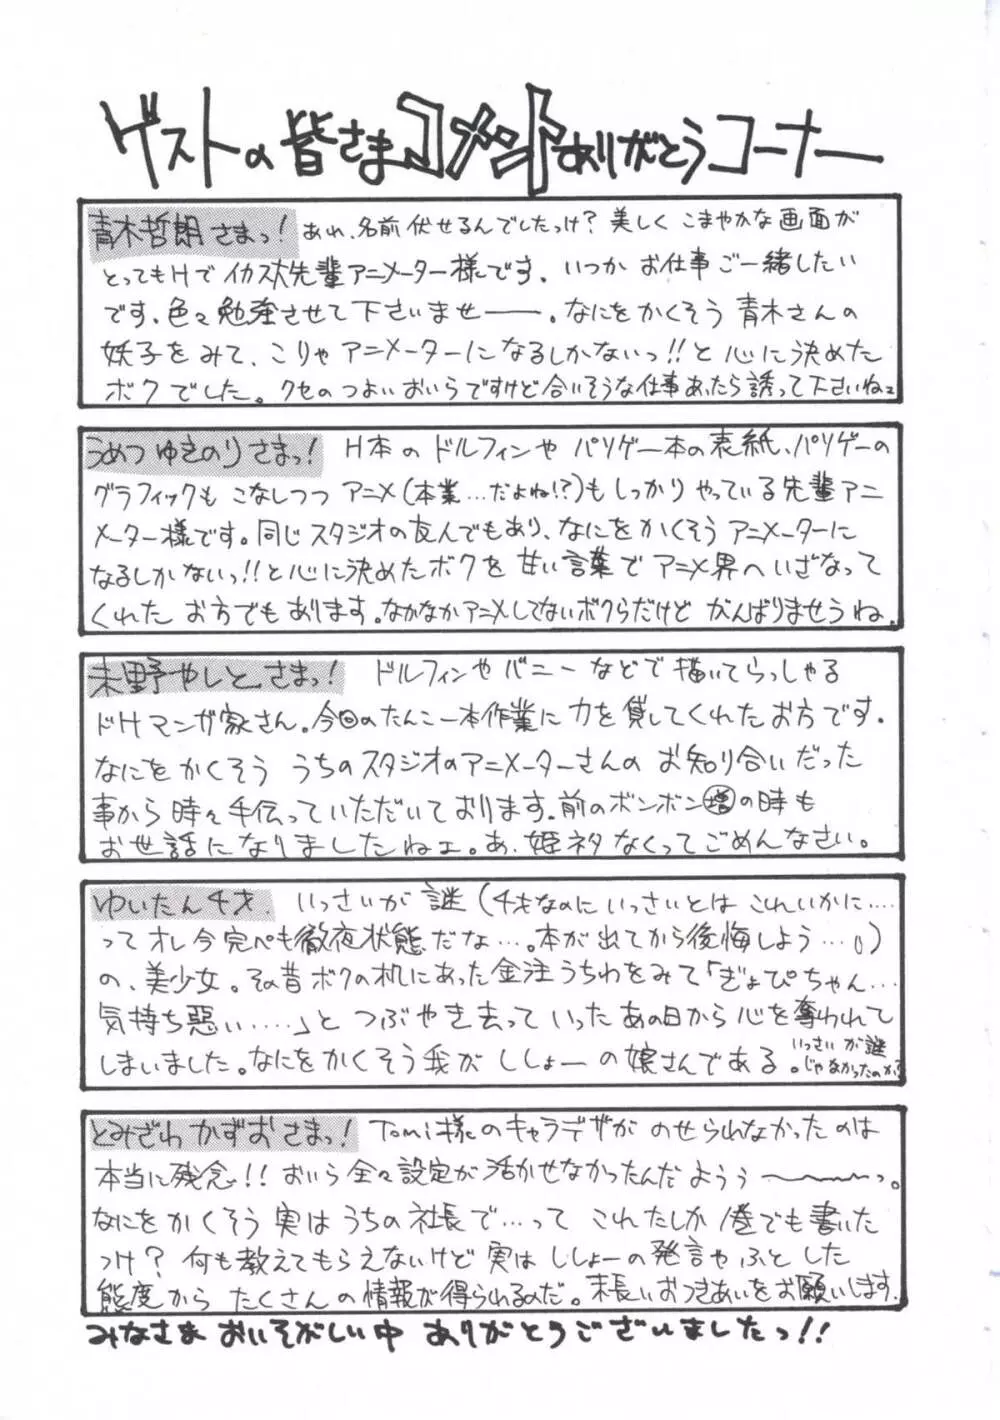 ゲストの皆さまコメントありがとうコーナー
青木哲朗さまっ! あれ、名前伏せるんでしたっけ?美しくこまやかな画面が
とってもHでイカス大先輩アニメーター様です、いつかお仕事ご一緒したい
です、色々勉強させて下さいませー。なにをかくそう青木さんの
妖子をみて、こりゃアニメーターになるしかないっ!!と心に決めた
ボクでした。クセのつよいおいらですけど合いそうな仕事あったら誘って下さいねェ
うめつゆきのりさまっ! H本のドルフィンやパソゲー本の表紙、パソゲーの
グラフィックもこなしつつアニメ(本業…だよね!?)もしっかりやっている先輩アニ
メーター様です。同じスタジオの友人でもあり、なにをかくそうアニメーターに
なるしかないっ!!と心に決めたボクを甘い言葉でアニメ界へいざなって
くれたお方でもあります。なかなかアニメしてないボクらだけどがんばりませうね。
未野やしとさまっ! ドルフィンやバニーなどで描いてらっしゃる
ドHマンガ家さん。今回のたんこー本作業に力を貸してくれたお方です。
なにをかくそううちのスタジオのアニメーターさんのお知り合いだった
事から時々手伝っていただいております。前のボンボン増の時も
お世話になりましたねェ。あ、姫ネタなくってごめんなさい。
ゆいたん千才、いっさいが謎(千才なのにいっさいとはこれいかに……
ってオレ今完ぺも徹夜状態だな…。本が出てから後悔しよう…。)
の、美少女。その昔ボクの机にあった金注うちわをみて「ぎょぴちゃん…
気持ち悪い……」とつぶやき去っていったあの日から心を奪われて
しまいました。なにをかくそう我がししょーの娘さんである。いっさいが謎
じゃなかったのか?
とみざわかずおさまっ! Tomi様のキャラデザがのせられなかったのは
本当に残念!!おいら全々設定が活かせなかったんだようぅ〜〜っ。
なにをかくそう実はうちの社長で…ってこれたしか1巻でも書いた
っけ?何も教えてもらえないけど実はししょーの発言やふとした
態度からたくさんの情報が得られるのだ。末長いおつきあいをお願いします。
みなさまおいそがしい中ありがとうございましたっ!!